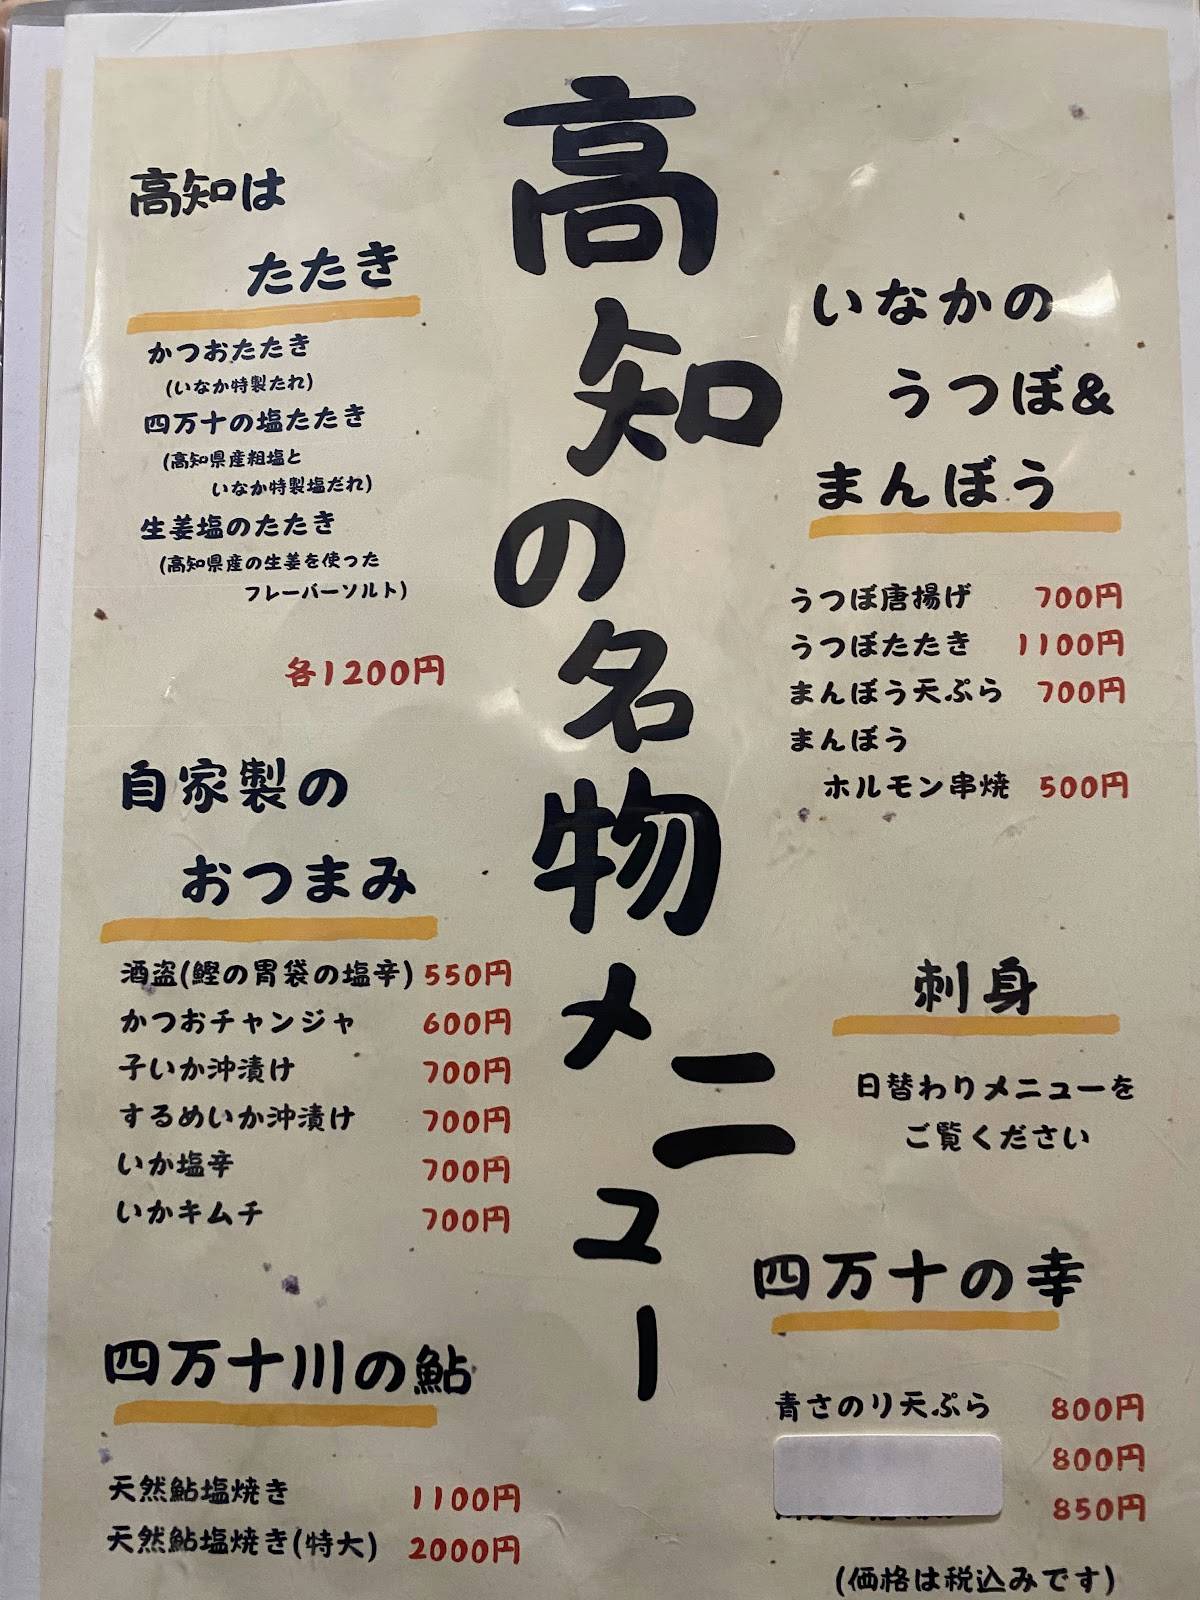 高知の名物メニュー
高知は
たたき
かつおたたき
(いなか特製たれ)
四万十の塩たたき
(高知県産粗塩と
いなか特製塩だれ)
生姜塩のたたき
(高知県産の生姜を使った
フレーバーソルト)
各1200円
自家製の
おつまみ
酒盗(鰹の胃袋の塩辛) 550円
かつおチャンジャ 600円
子いか沖漬け 700円
するめいか沖漬け 700円
いか塩辛 700円
いかキムチ 700円
四万十川の鮎
天然鮎塩焼き 1100円
天然鮎塩焼き(特大) 2000円
いなかの
うつぼ&
まんぼう
うつぼ唐揚げ 700円
うつぼたたき 1100円
まんぼう天ぷら 700円
まんぼう
ホルモン串焼 500円
刺身
日替わりメニューを
ご覧ください
四万十の幸
青さのり天ぷら 800円
800円
850円
(価格は税込みです)